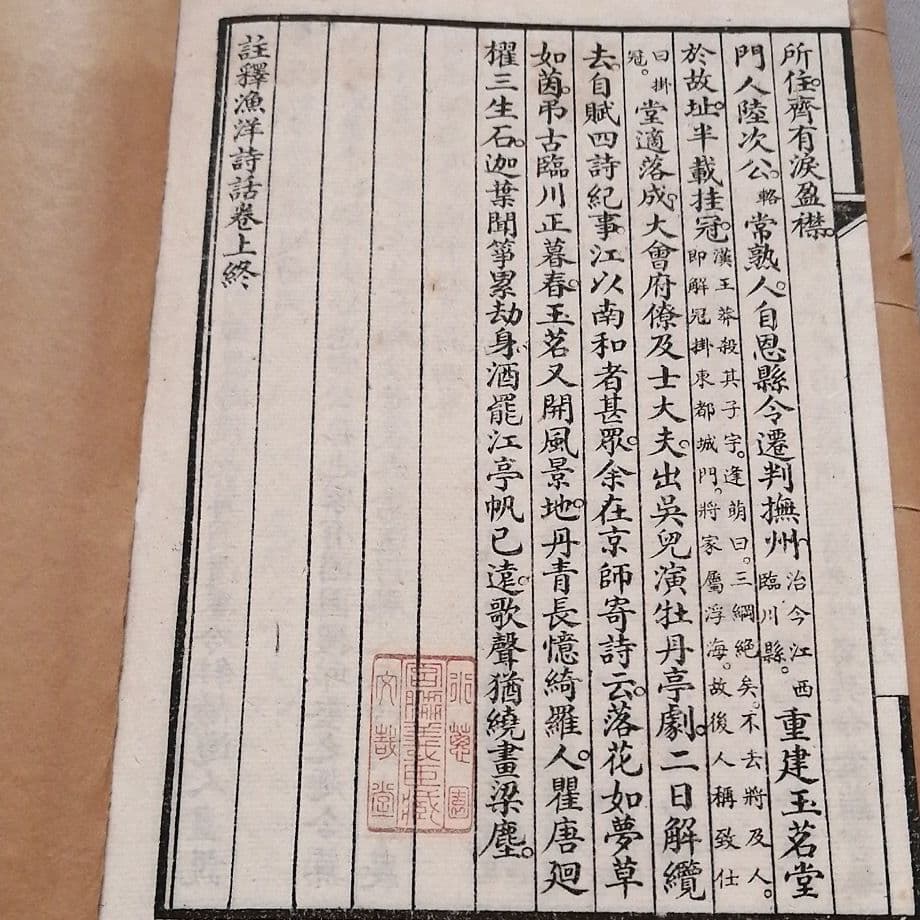 所住。齊有淚盈襟。
門人陸次公。輅常熟人。自恩縣令遷判撫州治今江西臨川縣。重建玉茗堂
於故址。半載挂冠。漢王莽殺其子宇。逢萌曰。三綱絕矣。不去將及人。即解冠掛東都城門。將家屬浮海。故後人稱致仕
曰掛冠。堂適落成。大會府僚及士大夫。出吳兒演牡丹亭劇。二日解纜
去。自賦四詩紀事。江以南和者甚眾。余在京師寄詩云。落花如夢草
如茵。弔古臨川正暮春。玉茗又開風景地。丹青長憶綺羅人。瞿唐廻
櫂三生石。迦葉聞箏累劫身。酒罷江亭帆已遠。歌聲猶繞畫梁塵。
註釋漁洋詩話卷上終